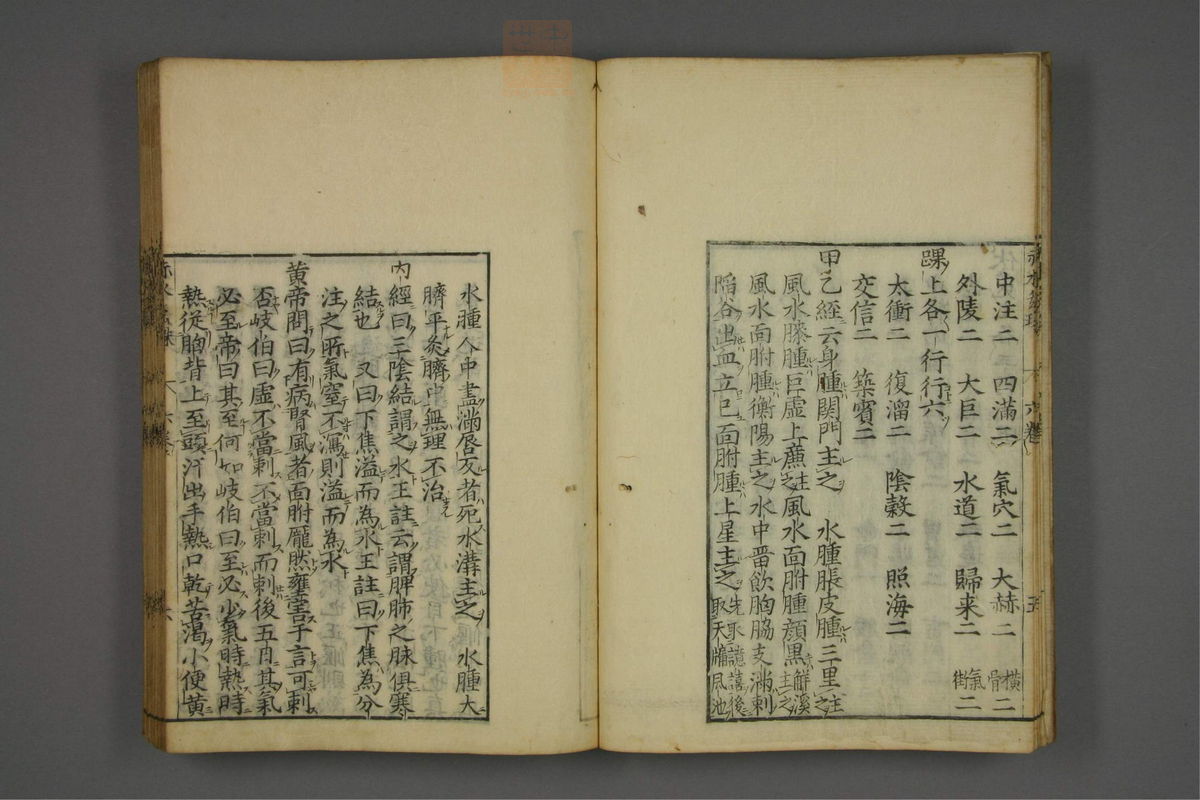 中注二 四滿二 氣穴二 大赫二 橫骨二
外陵二 大巨二 水道二 歸来二 氣街二
踝上各一行行六
太衝二 復溜二 陰穀二 照海二
交信二 築賓二
甲乙經云身腫関門主之 水腫脹皮腫三里主之
風水膝腫巨虚上廉主之風水面胕腫顔黒解溪主之
風水面胕腫衝陽主之水中畨飲胸脇支滿刺
陷谷出血立已面胕腫上星主之先取譩譆後取天牖風池
水腫人中盡滿唇反者死水溝主之 水腫大
臍平灸臍中無理不治
內經曰三陰結謂之水王註云謂脾肺之脉俱寒
結也 又曰下焦溢而為水王註曰下焦為分
注之所氣窒不瀉則溢而為水
黄帝問曰有病腎風者面胕厖然壅害于言可刺
否岐伯曰虚不當刺不當刺而刺後五日其氣
必至帝曰其至何如岐伯曰至必少氣時熱時
熱從胸背上至頭汗出手熱口乾苦渴小便黄